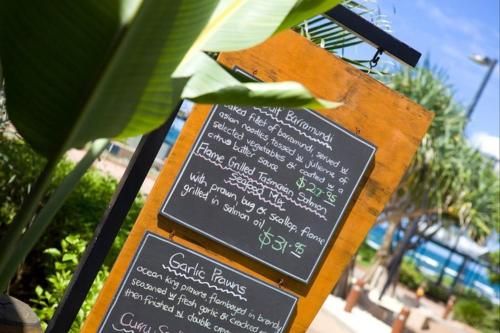 Barramundi
fillet of barramundi, served w
asian noodles, tossed w julienne of
selected vegetables & coated w a
citrus butter sauce
$27.95
Flame Grilled Tasmanian Salmon
Seafood Mix
with prawn, bug & scallop, flame
grilled in salmon oil
$31.95
Garlic Prawns
ocean king prawns flamboyed in brandy
seasoned w fresh garlic & cracked
then finished w double cream
Curry